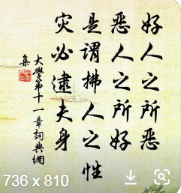 好人之所惡
惡人之所好
是謂拂人之性
灾必逮夫身
大學第十一章詞典網
集
736 x 810